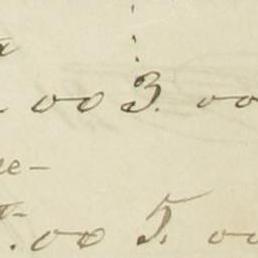 .00 3.00
e-
.00 5.00